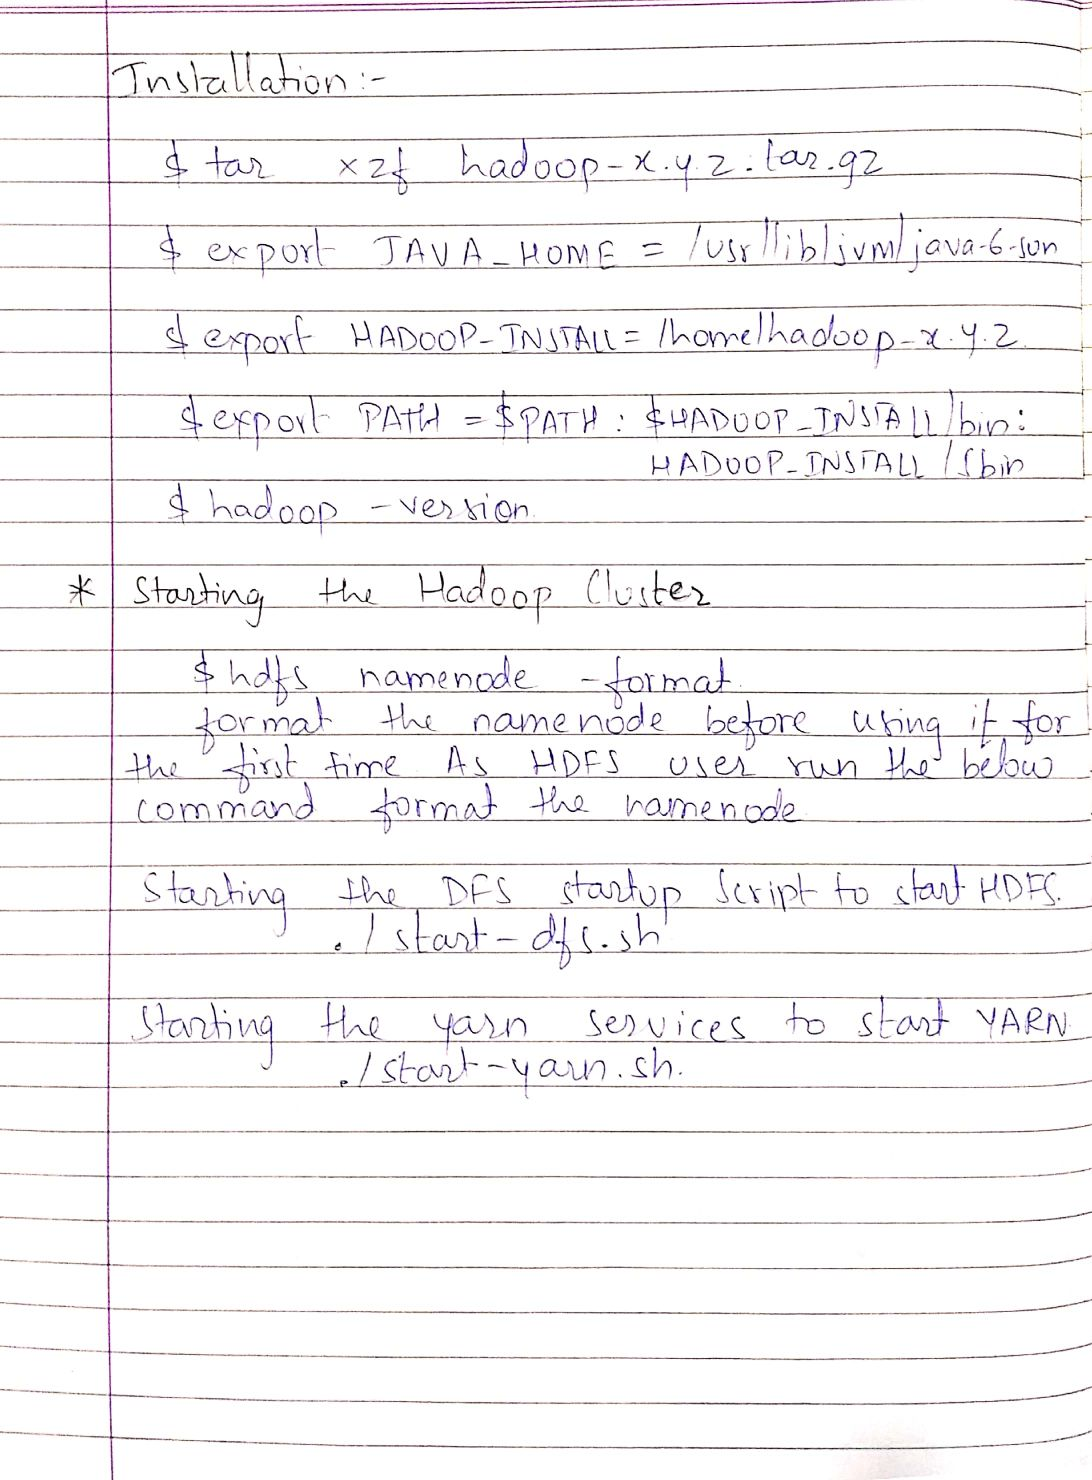 Installation :-
$ tar xzf hadoop-x.y.z.tar.gz
$ export JAVA_HOME = /usr/lib/jvm/java-6-sun
$ export HADOOP-INSTALL = /home/hadoop-x.y.z.
$ export PATH = $PATH : $HADOOP_INSTALL/bin :
HADOOP-INSTALL /sbin
$ hadoop -version.
* Starting the Hadoop Cluster
$ hdfs namenode -format.
format the namenode before using it for
the first time As HDFS user run the below
command format the namenode
Starting the DFS startup script to start HDFS.
./start-dfs.sh
Starting the yarn services to start YARN
./start-yarn.sh.